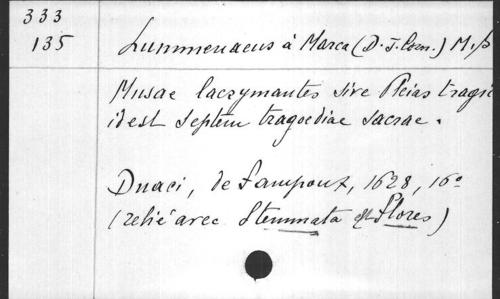 333
135
Lummenaeus à Marca (D. J. Com.) M
Musae lacrymantes sive Pleias tragic
id est septem tragoediae sacrae.
Duaci, de Fampoux, 1628, 16º
(relié avec Stemmata & Flores)